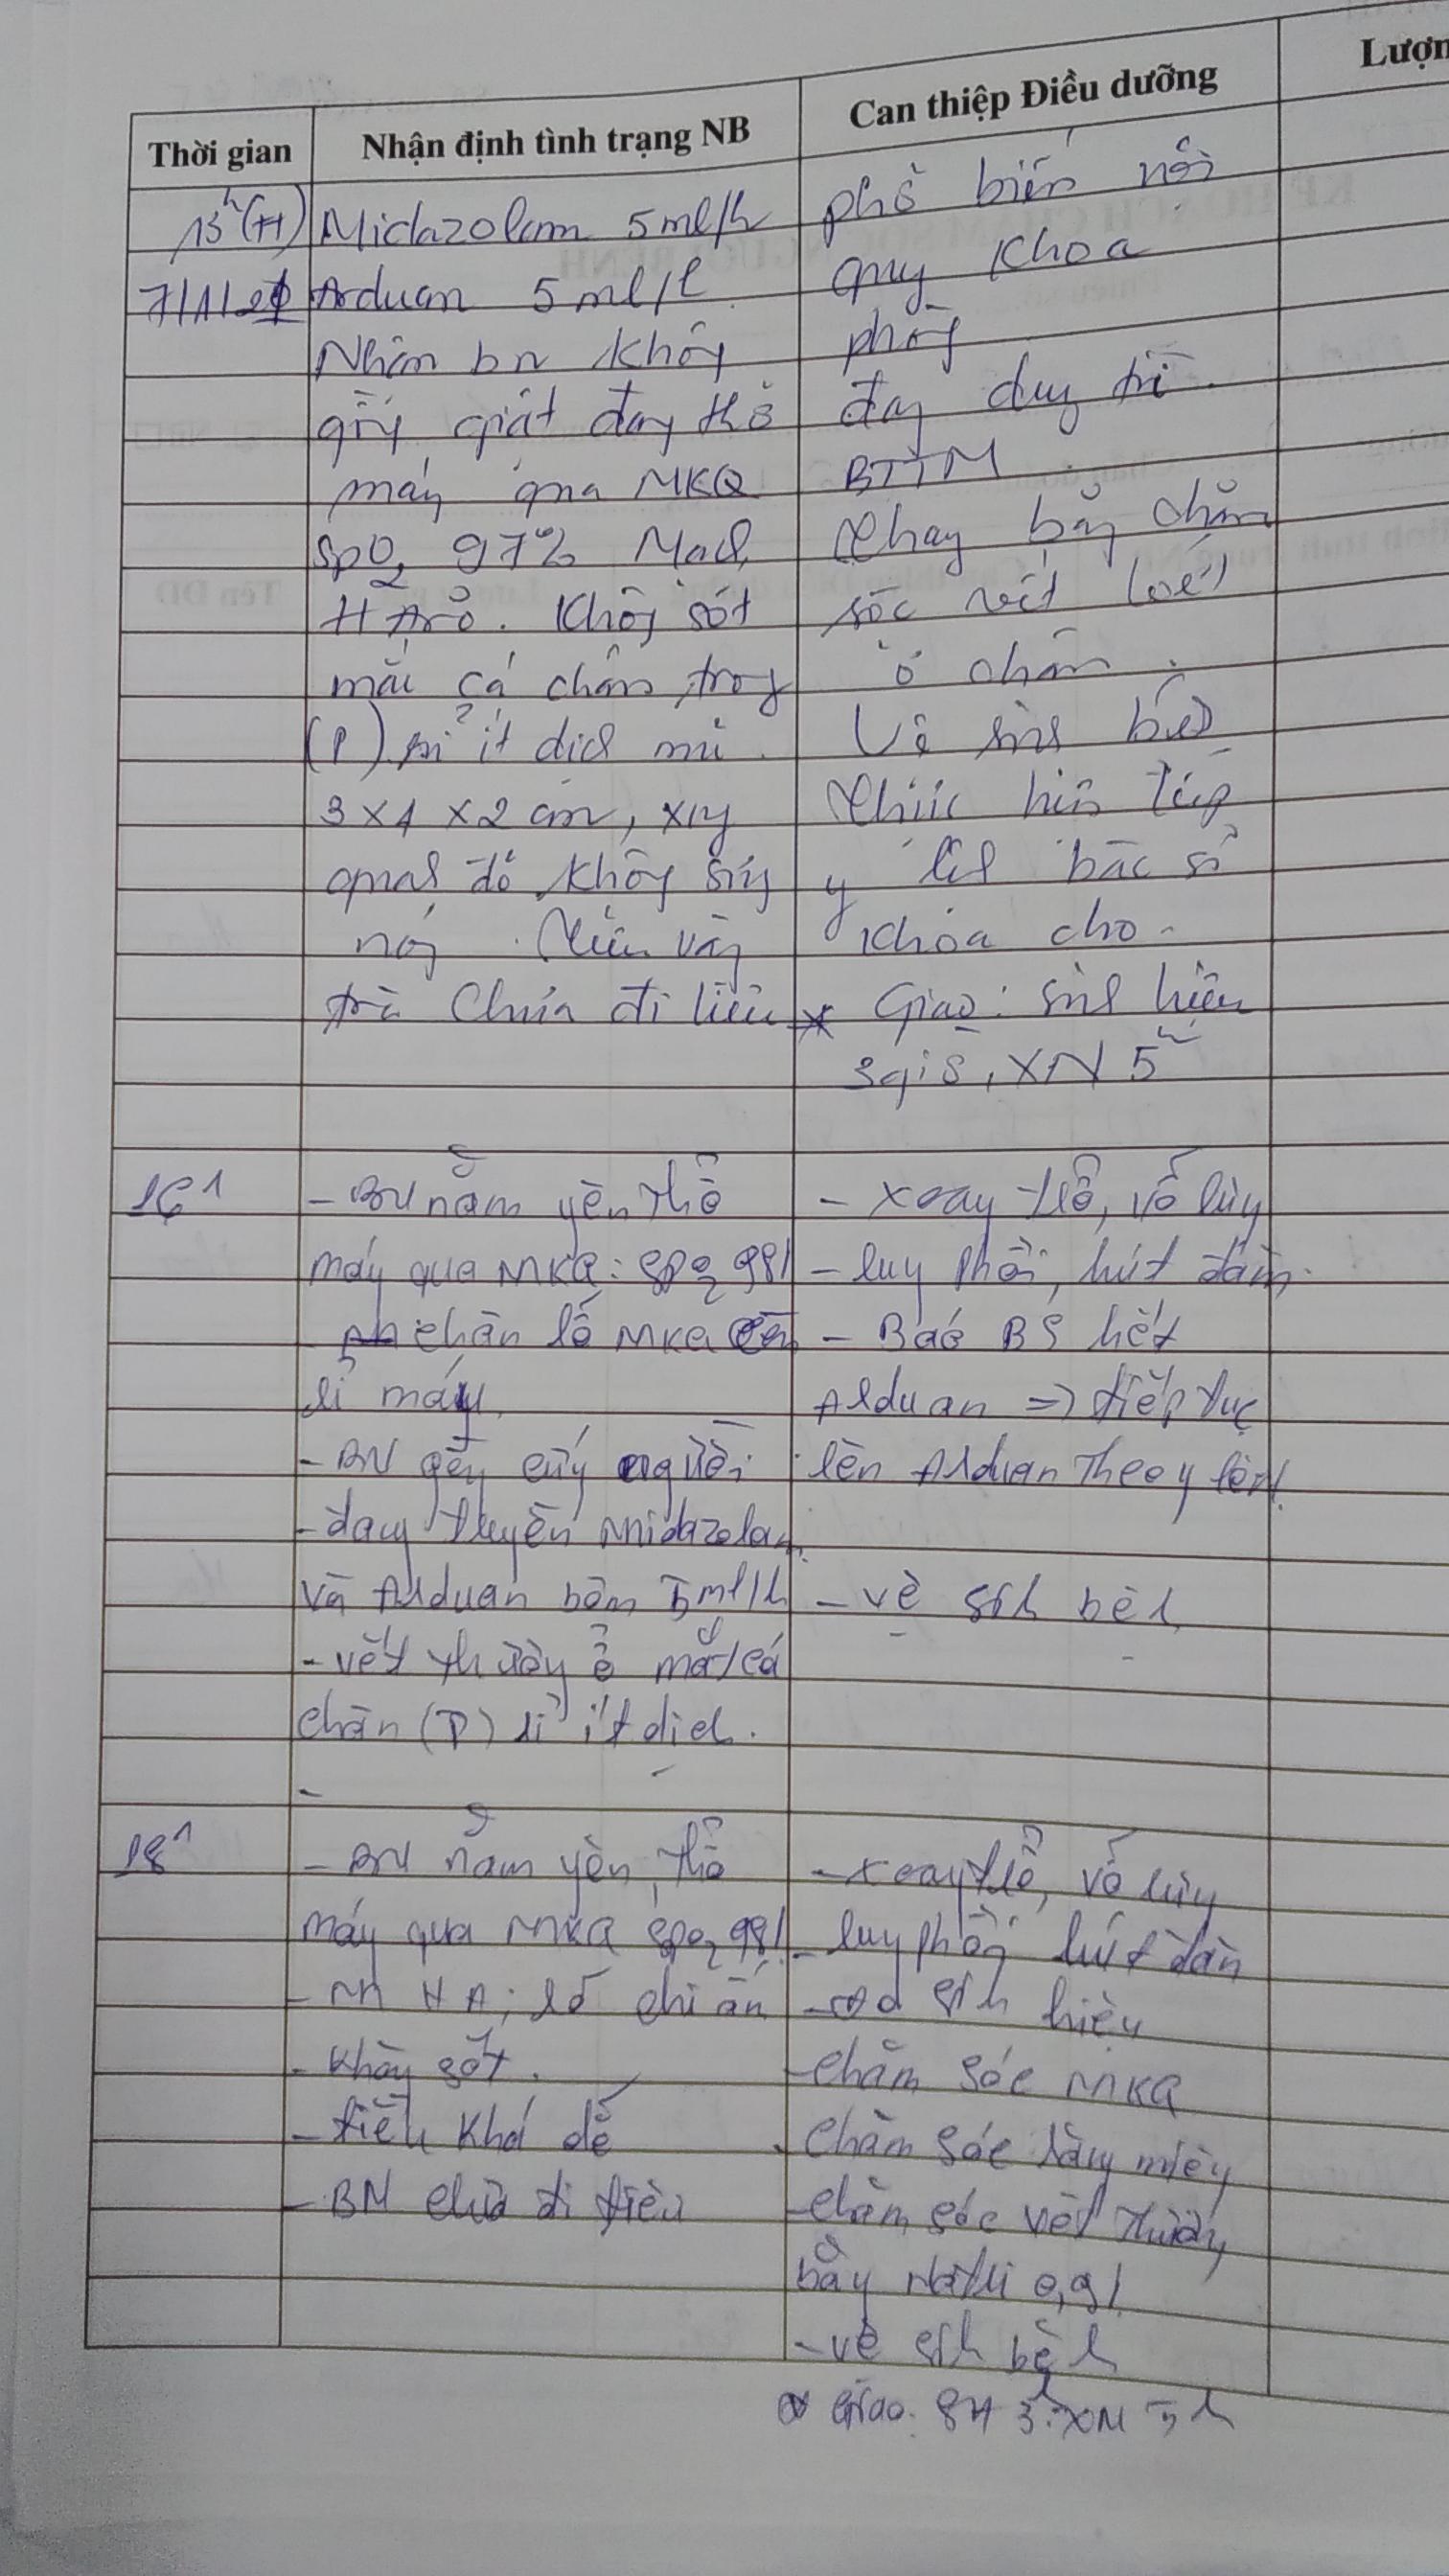 Thời gian
Nhận định tình trạng NB
Can thiệp Điều dưỡng
Lượn
Midazolam 5ml/h
Arduan 5ml/l
bn không
đang thở
máy qua MKQ
SpO2 97% Mạch
HA rõ. Không sốt
mắt cá chân trong
(P) rỉ ít dịch mủ
3 x 1 x 2 cm, xung
quanh đỏ không sưng
vàng
Chưa đi tiêu
phổ biến nội
quy khoa
phòng
đang duy trì
BTTM
Thay băng chăm
sóc vết loét
ở chân.
Vệ sinh
Thực hiện tiếp
y lệnh bác sĩ
khoa cho.
* Giao: sinh hiệu
XN 5h
16h
- BN nằm yên thở
máy qua MKQ: SpO2 98%
chân lổ MKQ
rỉ máu
- BN
- đang truyền Midazolam
và Arduan bơm 5ml/h
- vết thương ở mắt cá
chân (P) rỉ ít dịch.
-
- Xoay trở, vỗ lưng
phổi, hút đàm.
- Báo BS hết
Arduan => tiếp tục
lên Arduan theo y lệnh
- vệ sinh
18h
- BN nằm yên, thở
máy qua MKQ SpO2 98%
- HA: rõ chi ấm
- không sốt.
- tiểu khá dễ
- BN chưa đi tiêu
- xoay trở, vỗ lưng
phổi hút đàm
sinh hiệu
- chăm sóc MKQ
- chăm sóc răng miệng
- chăm sóc vết thương
bằng NaCl 0,9%
- vệ sinh
Giao: SH 3h XN 5h